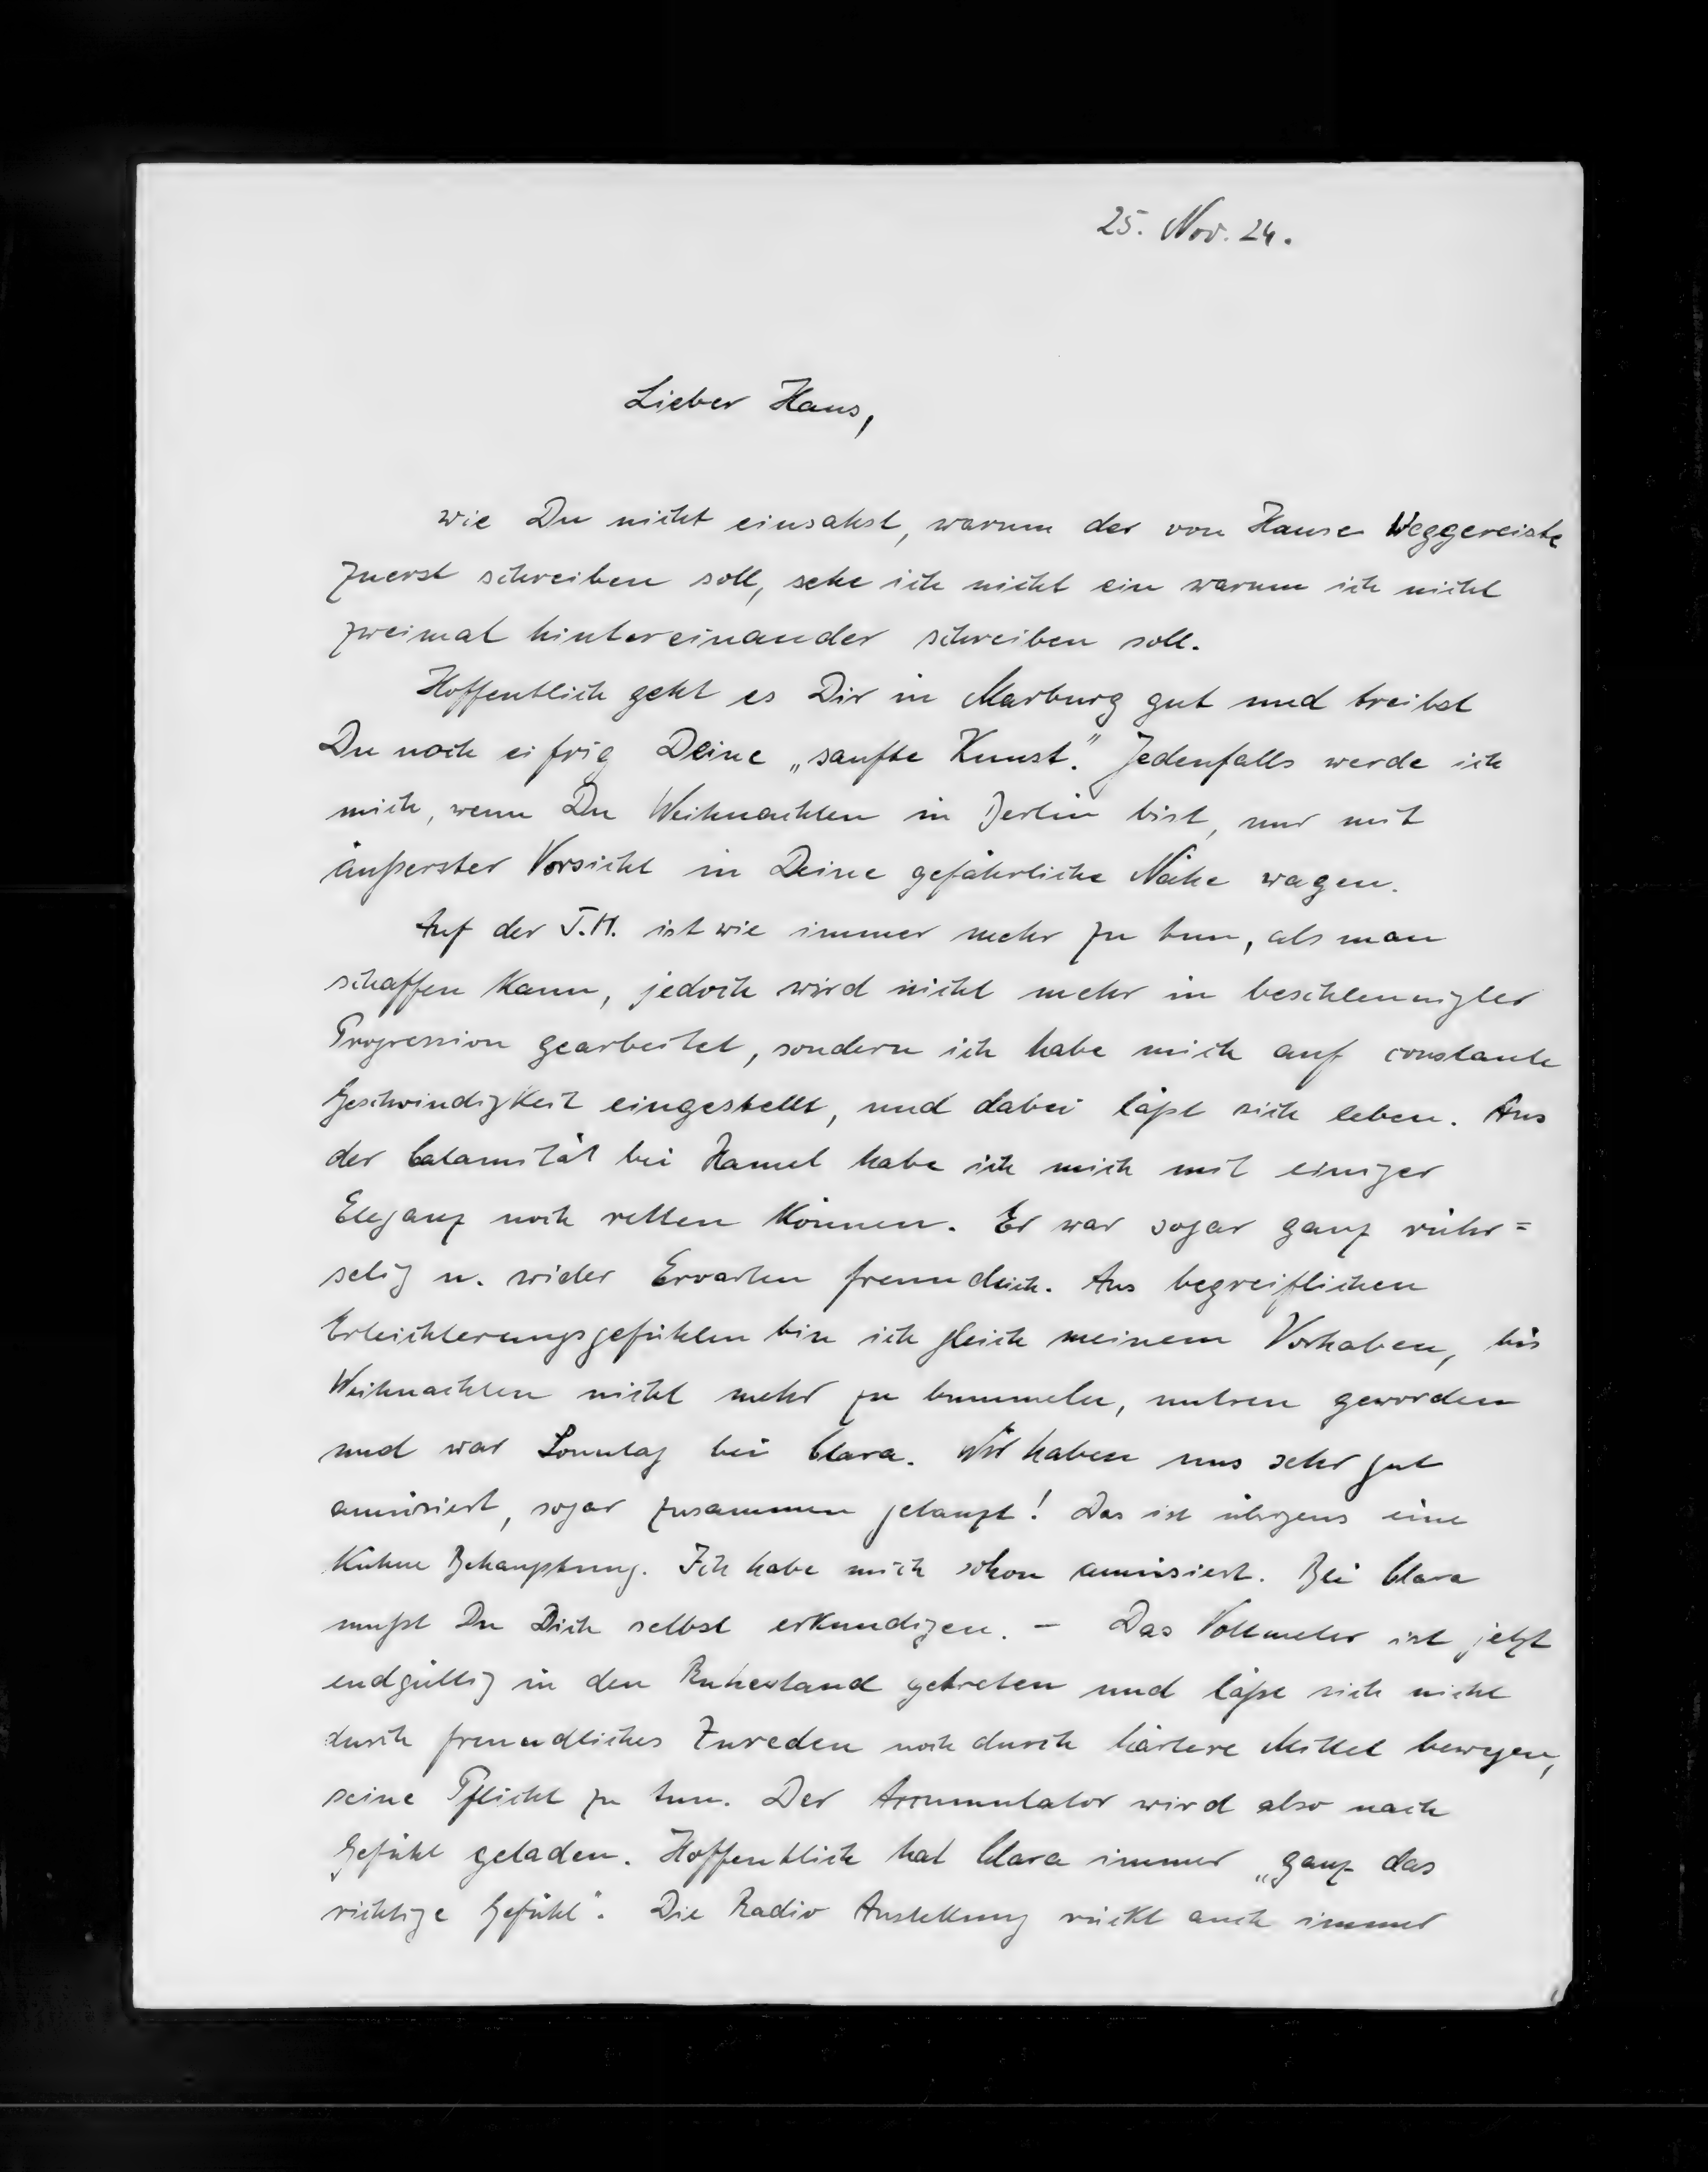 25. Nov. 24.
Lieber Hans,
wie Du nicht einsahst, warum der von Hause Weggereiste
zuerst schreiben soll, sehe ich nicht ein warum ich nicht
zweimal hintereinander schreiben soll.
Hoffentlich geht es Dir in Marburg gut und treibst
Du noch eifrig Deine „sanfte Kunst“. Jedenfalls werde ich
mich, wenn Du Weihnachten in Berlin bist, nur mit
äußerster Vorsicht in Deine gefährliche Nähe wagen.
Auf der T.H. ist wie immer mehr zu tun, als man
schaffen kann, jedoch wird nicht mehr in beschleunigter
Progression gearbeitet, sondern ich habe mich auf constante
Geschwindigkeit eingestellt, und dabei läßt sich leben. Aus
der Calamität bei Hamel habe ich mich mit einiger
Eleganz noch retten können. Er war sogar ganz rühr=
selig u. wider Erwarten freundlich. Aus begreiflichen
Erleichterungsgefühlen bin ich gleich meinem Vorhaben, bis
Weihnachten nicht mehr zu bummeln, untreu geworden
und war Sonntag bei Clara. Wir haben uns sehr gut
amüsiert, sogar zusammen getanzt! Das ist übrigens eine
kühne Behauptung. Ich habe mich schon amüsiert. Bei Clara
mußt Du Dich selbst erkundigen. – Das Voltmeter ist jetzt
endgültig in den Ruhestand getreten und läßt sich nicht
durch freundliches Zureden noch durch härtere Mittel bewegen,
seine Pflicht zu tun. Der Accumulator wird also nach
Gefühl geladen. Hoffentlich hat Clara immer „ganz das
richtige Gefühl“. Die Radio Austellung rückt auch immer